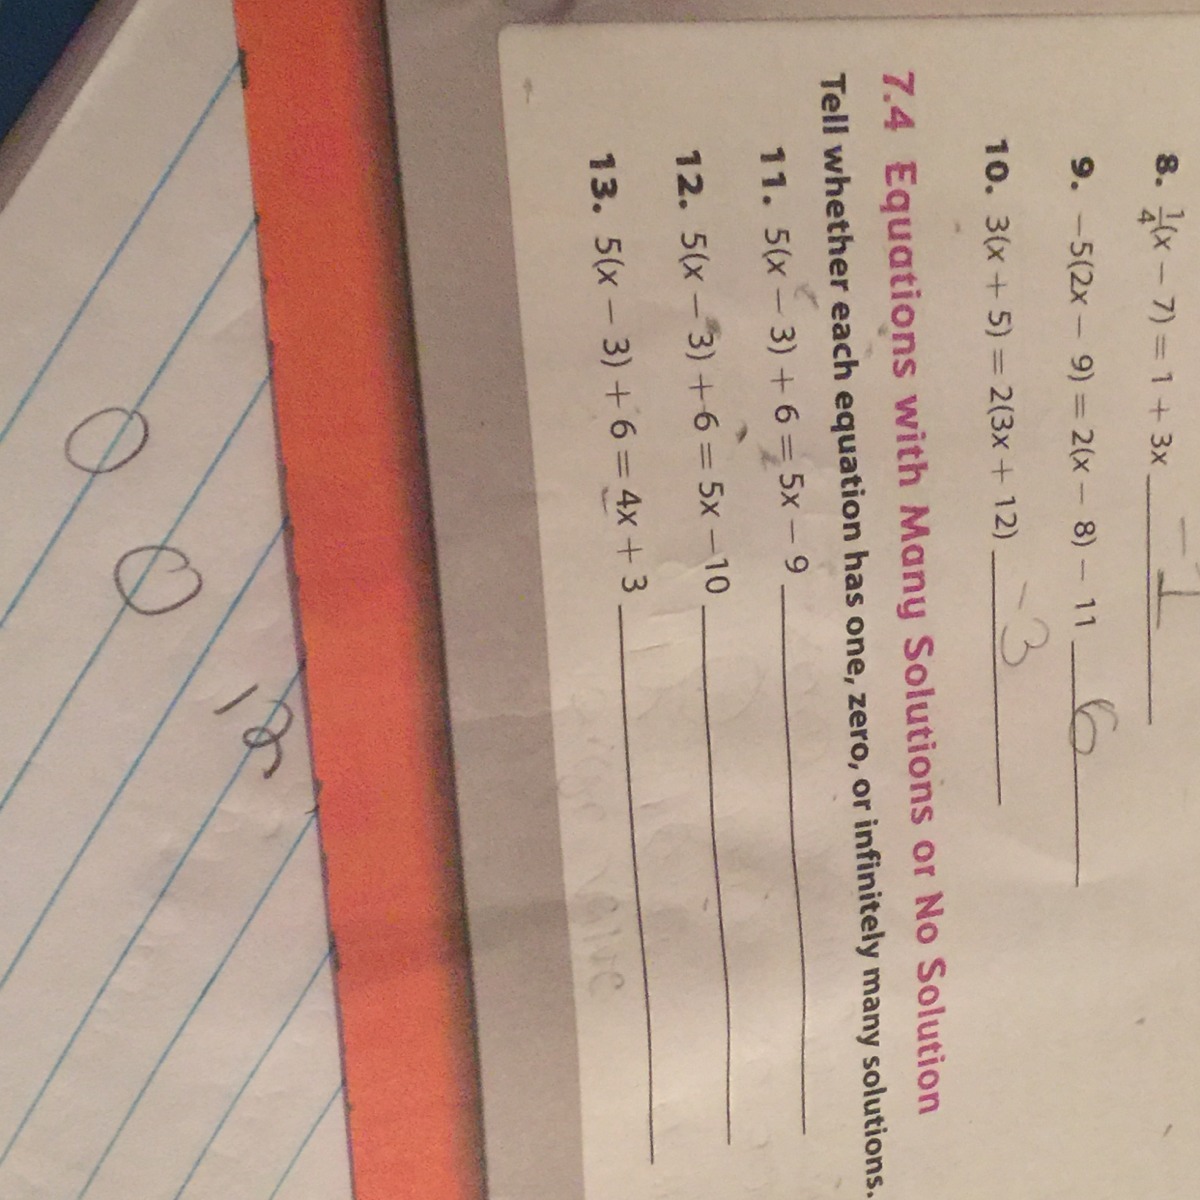 8. 1/4(x − 7) = 1 + 3x −1
9. −5(2x − 9) = 2(x − 8) − 11 6
10. 3(x + 5) = 2(3x + 12) −3
7.4 Equations with Many Solutions or No Solution
Tell whether each equation has one, zero, or infinitely many solutions.
11. 5(x − 3) + 6 = 5x − 9
12. 5(x − 3) + 6 = 5x − 10
13. 5(x − 3) + 6 = 4x + 3